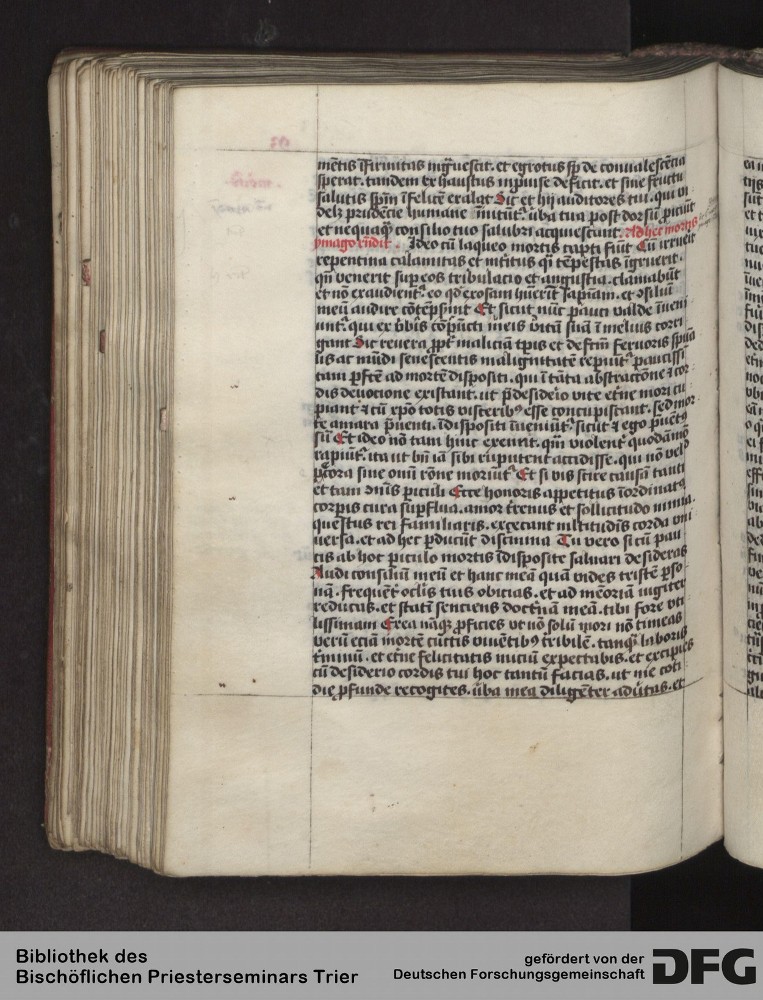 mētis īfirmitas ingͬuescit. et egrotus sꝑ de conualescēcia
sperat. tandem exhaustus inpinse deficit. et sine fructu
salutis spm̄ īfelicē exalat Sic et hij auditores tui. qui vi
delȝ prudēcie humane ītūt͛. ūba tua post dorsū ꝓiciūt
et nequaqͣ consilio tuo salubri acquiescunt. Ad hec mortis
ymago rn̄dit. Ideo cū laqueo mortis capti fiūt Cū irrueit
repentina calamitas et mͭitus qͣ tēpestas īgruerit.
qn̄ venerit sup eos tribulacio et angustia. clamabūt
et nō exaudientͬ. eo qd exosam huerīt sapīam. et ↄsiliū
meū audire cōtēpserint Et sicut nūc pauci valde īueni
unt͛. qui ex ūbis cōpūcti meis vitā suā ī melius corri
gant Sic reuera ꝓpt͛ maliciā tꝑis et defcm̄ feruoris spūa
lis ac mūdi senescentis malignitatē repiūt͛ paucissi
tam ꝑfcē ad mortē dispositi. qui ī tāta abstractōne ⁊ cor
dis deuocione existant. ut p̄ desiderio vite et͛ne mori cu
piant ⁊ cū xp̄o totis visceribꝰ esse concupiscant. sed mor
te amara p̄uenti. īdispositi īueniūt͛. sicut ⁊ ego p̄uētꝰ
sū Et ideo nō tam hinc exeunt. qm̄ violent͛ quodāmō
rapiūt͛. ita ut bn̄ iā sibi rꝫputent accidisse. qui nō vel
pͨcora sine omni rōne moriūt͛ Et si vis scire causā tanti
et tam ↄmūis piculi Ecce honoris appetitus īordinatꝰ
corpis cura supflua. amor t͛renus et sollicitudo nimia.
questus rei familiaris. excecant ml̄titudīs corda vni
uersa. et ad hec ꝑducūt discrimina Tu vero si cū pau
cis ab hoc piculo mortis īdisposite saluari desideras
Audi consiliū meū et hanc meā quā vides tristē ꝑso
nā. frequēt͛ oclīs tuis obicias. et ad meōriā iugiter
reducas. et statī senciens doctͥnā meā. tibi fore vti
lissimam Erea nāqꝫ ꝓficies ut nō solū mori nō timeas
verū eciā mortē cūctis viuētibꝰ t͛ribilē. tanqͣ laboris
t͛minū. et et͛ne felicitatis iniciū expectabis. et excipies
cū desiderio cordis tui hoc tantū facias. ut me coti
die ꝓfunde recogites. ūba mea diligēter adūtas. et
Bibliothek des
Bischöflichen Priesterseminars Trier
gefördert von der
Deutschen Forschungsgemeinschaft
DFG